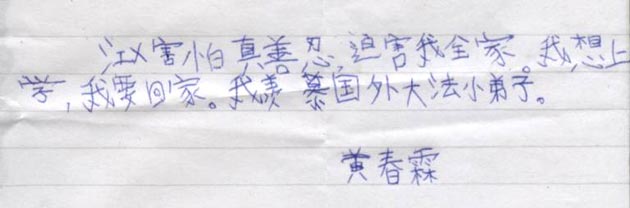 江X害怕真善忍，迫害我全家。我想上
学，我要回家。我羡慕国外大法小弟子。
黄春霖